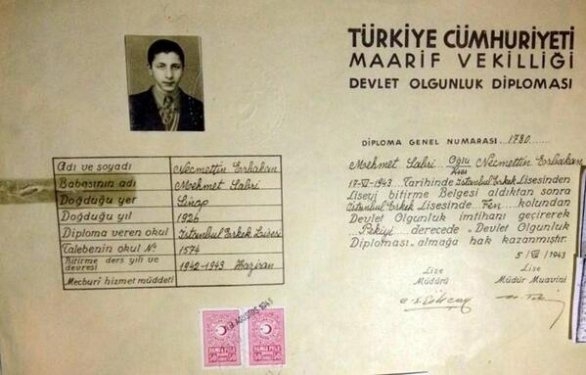 TÜRKİYE CÜMHURİYETİ
MAARİF VEKİLLİĞİ
DEVLET OLGUNLUK DİPLOMASI
DİPLOMA GENEL NUMARASI 1780
Mehmet Sabri Oğlu Necmettin Erbakan
Kızı
17-VI-1943 Tarihinde İstanbul Erkek Lisesinden
Liseyi bitirme Belgesi aldıktan sonra
İstanbul Erkek Lisesinde Fen kolundan
Devlet Olgunluk imtihanı geçirerek
Pekiyi derecede «Devlet Olgunluk
Diploması» almağa hak kazanmıştır.
5/VII/1943
Lise Lise
Müdürü Müdür Muavini
Adı ve soyadı Necmettin Erbakan
Babasının adı Mehmet Sabri
Doğduğu yer Sinop
Doğduğu yıl 1926
Diploma veren okul İstanbul Erkek Lisesi
Talebenin okul No 1574
Bitirme ders yılı ve devresi 1942-1943 Haziran
Mecburî hizmet müddeti